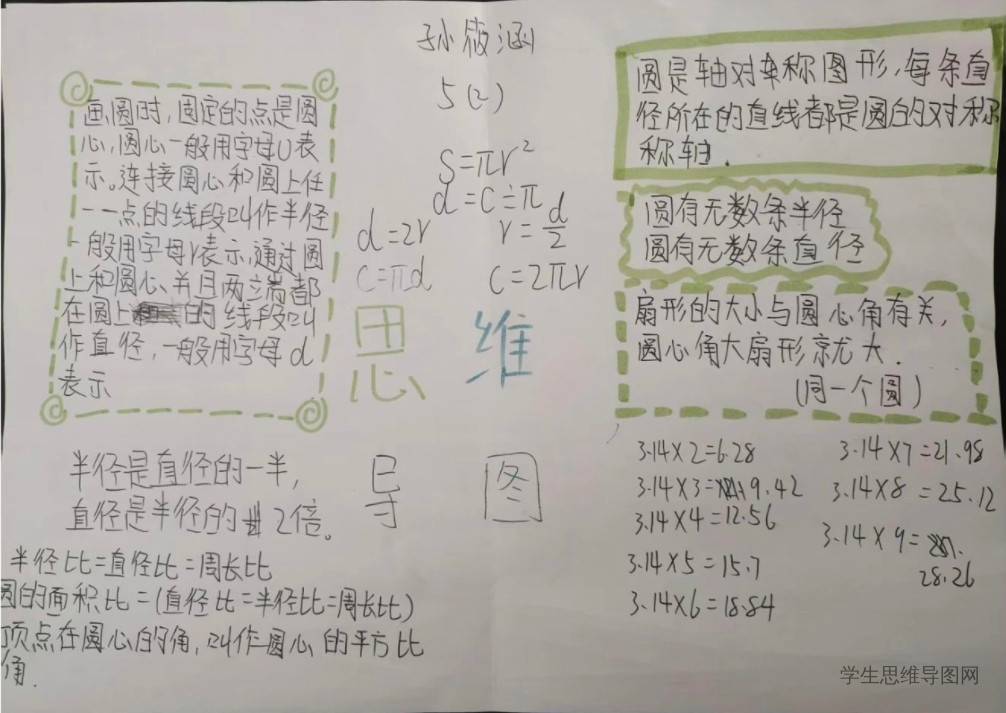 孙筱涵
5(2)
画圆时,固定的点是圆
心,圆心一般用字母O表
示。连接圆心和圆上任
一一点的线段叫作半径
一般用字母r表示,通过圆
上和圆心,并且两端都
在圆上的线段叫
作直径,一般用字母d
表示
S=πr²
d=C÷π
d=2r
r=d/2
C=πd
C=2πr
思维
导图
圆是轴对称图形,每条直
径所在的直线都是圆的对称
称轴.
圆有无数条半径
圆有无数条直径
扇形的大小与圆心角有关,
圆心角大扇形就大.
(同一个圆)
半径是直径的一半,
直径是半径的2倍。
半径比=直径比=周长比
圆的面积比=(直径比=半径比=周长比)
的平方比
顶点在圆心的角,叫作圆心
角.
3.14×2=6.28
3.14×3=9.42
3.14×4=12.56
3.14×5=15.7
3.14×6=18.84
3.14×7=21.98
3.14×8=25.12
3.14×9=
28.26
学生思维导图网